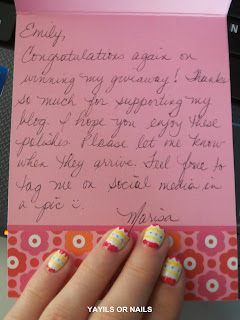 Emily,
Congratulations again on
winning my giveaway! Thanks
so much for supporting my
blog. I hope you enjoy these
polishes. Please let me know
when they arrive. Feel free to
tag me on social media in
a pic :).
Marisa
YAYILS OR NAILS